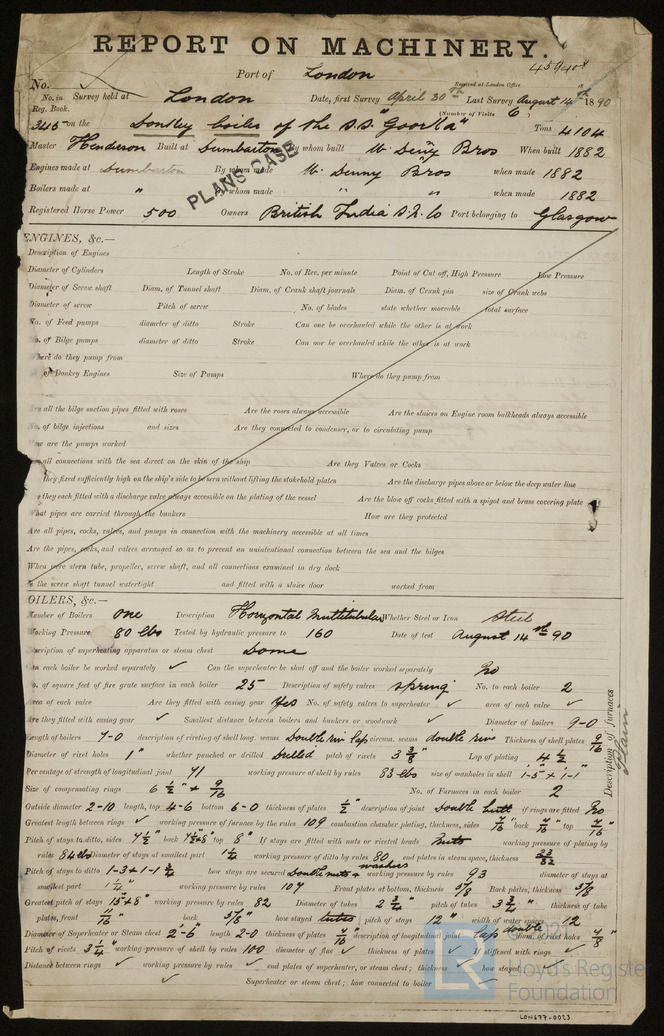 REPORT ON MACHINERY.
Port of London
Received at London Office
No. in Reg. Book. Survey held at London Date, first Survey April 30th Last Survey August 14th 1890
(Number of Visits 6)
345 on the Donkey boiler of the S.S. "Goorka" Tons 4104
Master Henderson Built at Dumbarton By whom built W. Denny Bros When built 1882
Engines made at Dumbarton By whom made W. Denny Bros when made 1882
PLANS CASE
Boilers made at " By whom made " " when made 1882
Registered Horse Power 500 Owners British India S.N. Co Port belonging to Glasgow
ENGINES, &c.—
Description of Engines
Diameter of Cylinders Length of Stroke No. of Rev. per minute Point of Cut off, High Pressure Low Pressure
Diameter of Screw shaft Diam. of Tunnel shaft Diam. of Crank shaft journals Diam. of Crank pin size of Crank webs
Diameter of screw Pitch of screw No. of blades state whether moveable total surface
No. of Feed pumps diameter of ditto Stroke Can one be overhauled while the other is at work
No. of Bilge pumps diameter of ditto Stroke Can one be overhauled while the other is at work
Where do they pump from
of Donkey Engines Size of Pumps Where do they pump from
Are all the bilge suction pipes fitted with roses Are the roses always accessible Are the sluices on Engine room bulkheads always accessible
No. of bilge injections and sizes Are they connected to condenser, or to circulating pump
How are the pumps worked
all connections with the sea direct on the skin of the ship Are they Valves or Cocks
they fixed sufficiently high on the ship's side to be seen without lifting the stokehold plates Are the discharge pipes above or below the deep water line
they each fitted with a discharge valve always accessible on the plating of the vessel Are the blow off cocks fitted with a spigot and brass covering plate
What pipes are carried through the bunkers How are they protected
Are all pipes, cocks, valves, and pumps in connection with the machinery accessible at all times
Are the pipes, cocks, and valves arranged so as to prevent an unintentional connection between the sea and the bilges
When were stern tube, propeller, screw shaft, and all connections examined in dry dock
Is the screw shaft tunnel watertight and fitted with a sluice door worked from
BOILERS, &c.—
Number of Boilers one Description Horizontal Multitubular Whether Steel or Iron Steel
Working Pressure 80 lbs Tested by hydraulic pressure to 160 Date of test August 14th 90
Description of superheating apparatus or steam chest Dome
Can each boiler be worked separately ✓ Can the superheater be shut off and the boiler worked separately No
No. of square feet of fire grate surface in each boiler 25 Description of safety valves spring No. to each boiler 2
Area of each valve Are they fitted with easing gear Yes No. of safety valves to superheater ✓ area of each valve ✓
Are they fitted with easing gear ✓ Smallest distance between boilers and bunkers or woodwork ✓ Diameter of boilers 9-0
Length of boilers 7-0 description of riveting of shell long. seams Double riv lap circum. seams double riv Thickness of shell plates 9/16
Diameter of rivet holes 1" whether punched or drilled Drilled pitch of rivets 3 3/8" Lap of plating 4 1/2
Per centage of strength of longitudinal joint 71 working pressure of shell by rules 83 lbs size of manholes in shell 1-5 x 1-1
Size of compensating rings 6 1/2" x 9/16 No. of Furnaces in each boiler 2
Description of Furnaces Plain
Outside diameter 2-10 length, top 4-6 bottom 6-0 thickness of plates 1/2" description of joint Double butt if rings are fitted No
Greatest length between rings ✓ working pressure of furnace by the rules 109 combustion chamber plating, thickness, sides 7/16" back 7/16" top 7/16"
Pitch of stays to ditto, sides 7 1/2" back 7 1/2 x 8" top 8" If stays are fitted with nuts or riveted heads Nuts working pressure of plating by
rules 84 lbs Diameter of stays at smallest part 1 1/4 working pressure of ditto by rules 80 end plates in steam space, thickness 23/32
Pitch of stays to ditto 1-3 x 1-1 3/4 how stays are secured Double nuts & washers working pressure by rules 93 diameter of stays at
smallest part 1 3/4" working pressure by rules 107 Front plates at bottom, thickness 5/8 Back plates, thickness 5/8
Greatest pitch of stays 15" x 8" working pressure by rules 82 Diameter of tubes 2 3/4" pitch of tubes 3 3/4" thickness of tube
plates, front 11/16 back 5/8" how stayed tubes pitch of stays 12" width of water spaces 12
Diameter of Superheater or Steam chest 2-6" length 2-0 thickness of plates 7/16" description of longitudinal joint lap double diam. of rivet holes 7/8"
Pitch of rivets 3 1/4" working pressure of shell by rules 100 diameter of flue ✓ thickness of plates ✓ If stiffened with rings ✓
Distance between rings ✓ working pressure by rules ✓ end plates of superheater, or steam chest; thickness ✓ how stayed ✓
Superheater or steam chest; how connected to boiler ✓
© 2021
LR
Lloyd's Register
Foundation
LON677-0023